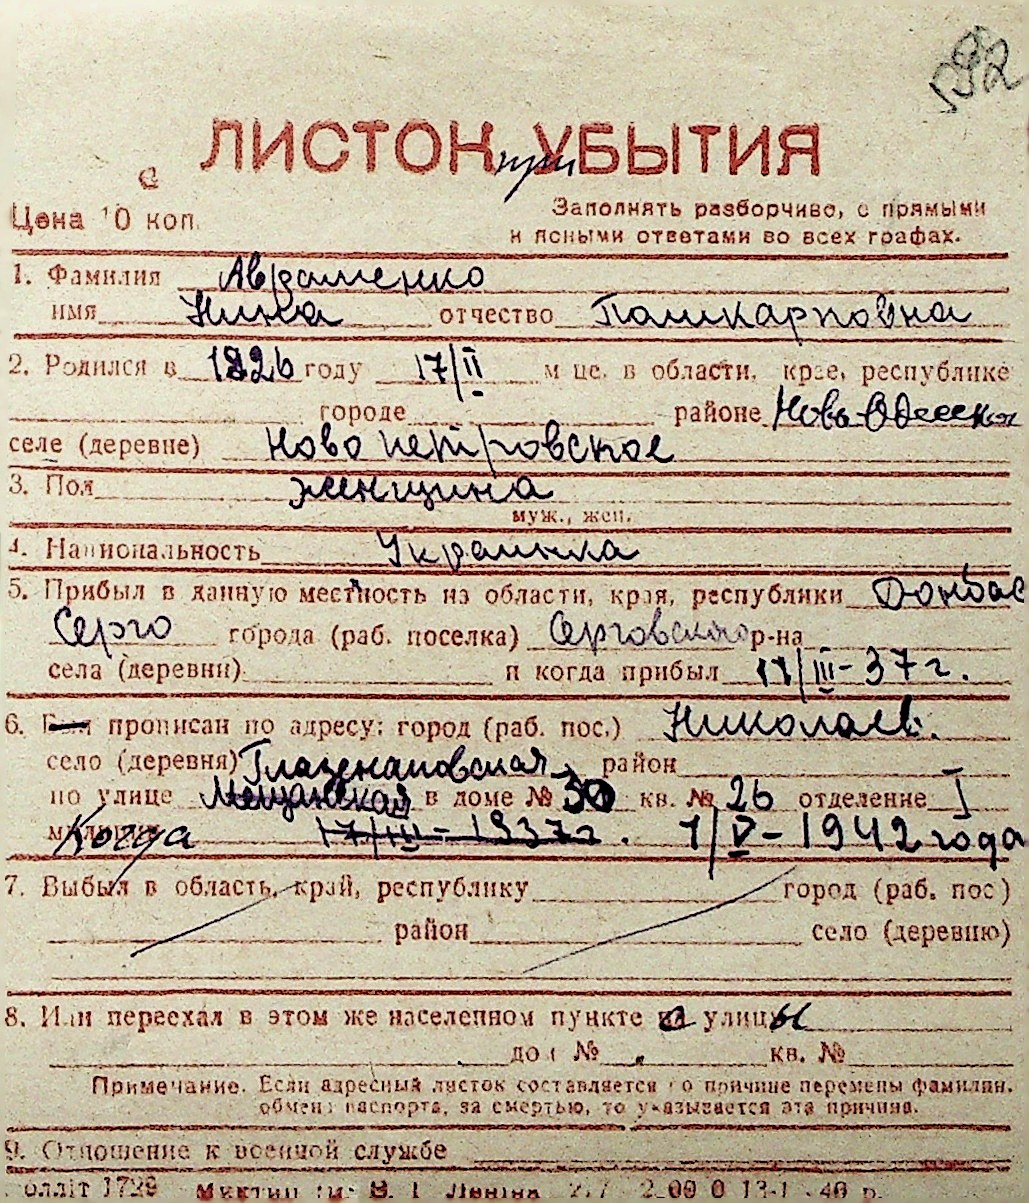 ЛИСТОК УБЫТИЯ
при
Цена 10 коп.
Заполнять разборчиво, с прямыми
и ясными ответами во всех графах.
1. Фамилия Авраменко
имя Нина отчество Поликарповна
2. Родился в 1926 году 17/II м-це, в области, крае, республике
городе районе Ново-Одесск
селе (деревне) Ново петровское
3. Пол женщина
муж., жен.
4. Национальность Украинка
5. Прибыл в данную местность из области, края, республики Донбас
Серго города (раб. поселка) Серговского р-на
села (деревни) и когда прибыл 17/III-37г.
6. Был прописан по адресу: город (раб. пос.) Николаев.
село (деревня) Глазенаповская район
по улице Мещанская в доме № 30 кв. № 26 отделение I
Когда 17/III-1937г. 1/V-1942 года
7. Выбыл в область, край, республику город (раб. пос)
район село (деревню)
8. Или переехал в этом же населенном пункте улицы
дом № кв. №
Примечание. Если адресный листок составляется по причине перемены фамилии,
обмена паспорта, за смертью, то указывается эта причина.
9. Отношение к военной службе
оллiт 1729 В. I Ленiна